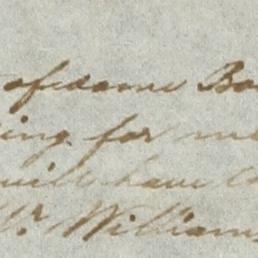 of some Bo
ing for me
will have
Mr. Williams